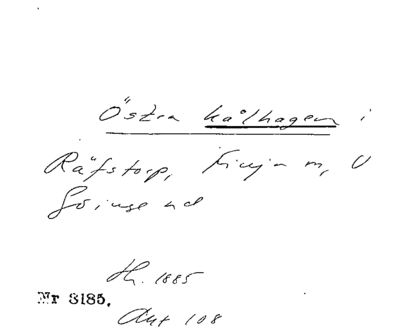 Östra kålhagen i
Räfstorp, Finja m, V
Göinge hd
Th. 1885
Nr 3185.
Akt 108